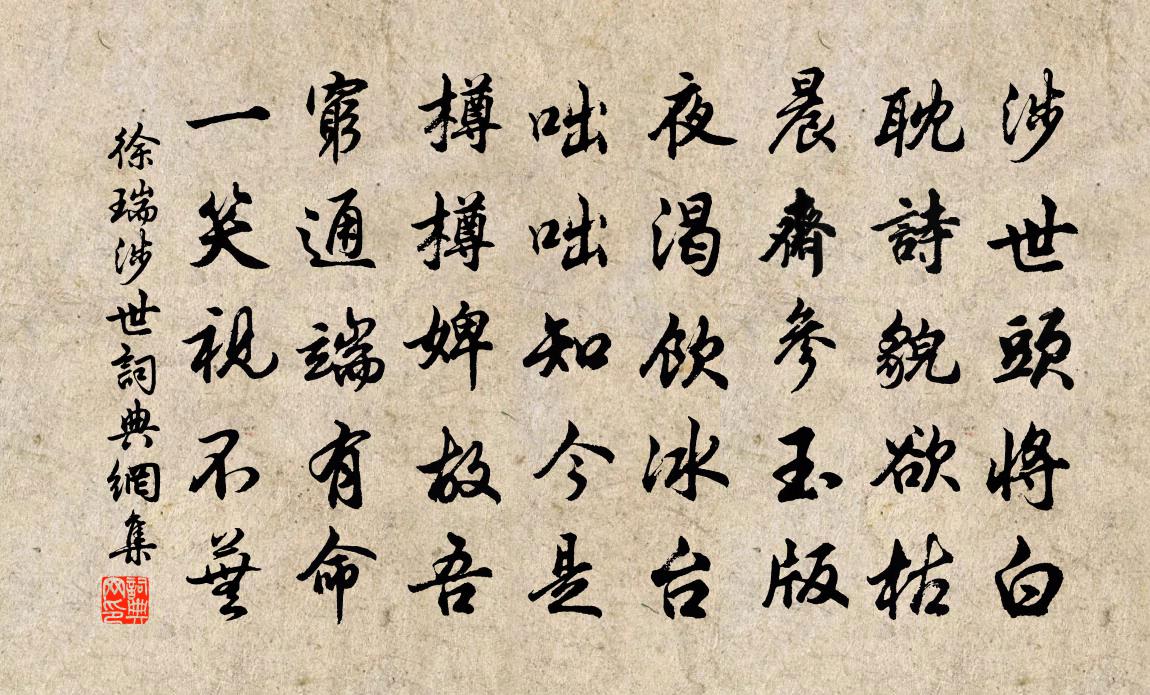 涉世頭將白
耽詩貌欲枯
晨齋參玉版
夜渴飲冰台
咄咄知今是
樽樽婢故吾
窮通端有命
一笑視不蕪
徐瑞涉世詞典網集
詞典網印